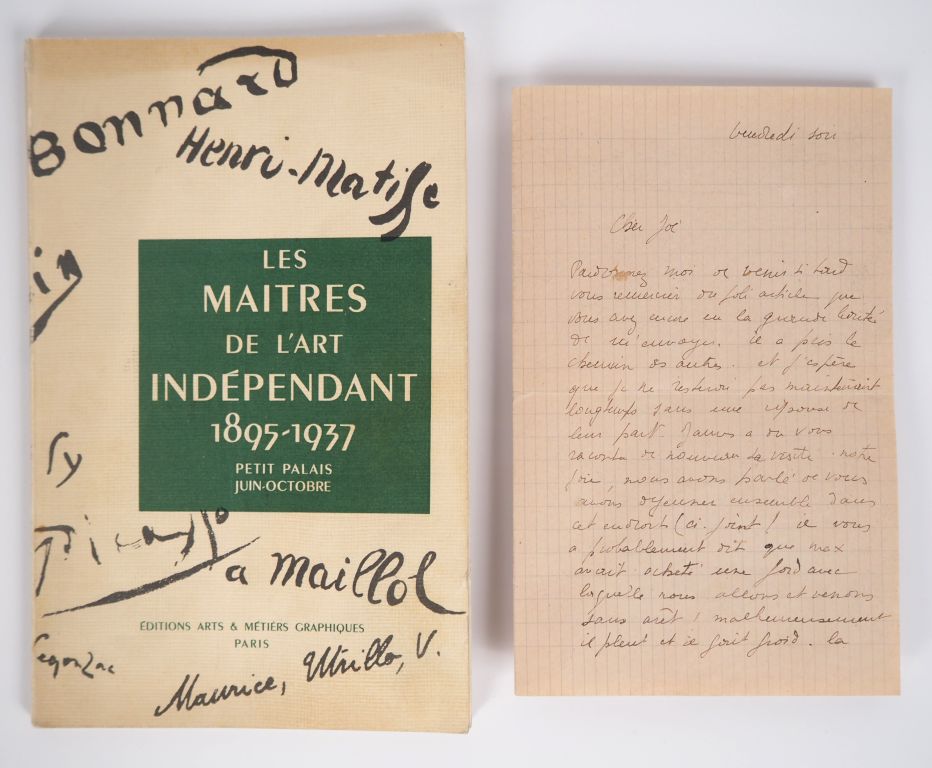 Bonnard
Henri-Matisse
in
LES
MAITRES
DE L'ART
INDÉPENDANT
1895-1937
PETIT PALAIS
JUIN-OCTOBRE
Sy
Picasso
a Maillol
ÉDITIONS ARTS & MÉTIERS GRAPHIQUES
PARIS
Segonzac
Maurice, Utrillo, V.
Vendredi soir
Cher Joé
Pardonnez moi de venir si tard
vous remercier du joli article que
vous avez encore eu la grande bonté
de m'envoyer. il a pris le
chemin des autres. et j'espère
que je ne resterai pas maintenant
longtemps sans une réponse de
leur part. a du vous
raconter de nouveau sa visite. notre
joie, nous avons parlé de vous
avons déjeuner ensemble dans
cet endroit (ci-joint) il vous
a probablement dit que max
avait acheté une ford avec
laquelle nous allons et venons
sans arêt! malheureusement
il pleut et il fait froid. la